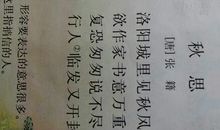 秋思
[唐]张籍
洛阳城里见秋风
欲作家书意万重
复恐匆匆说不尽
行人②临发又开封
形容要表达的意思很多。
这里指捎信的人。